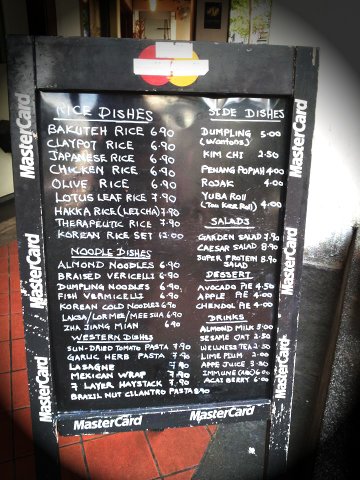 RICE DISHES
BAKUTEH RICE 6.90
CLAYPOT RICE 6.90
JAPANESE RICE 6.90
CHICKEN RICE 6.90
OLIVE RICE 6.90
LOTUS LEAF RICE 7.90
HAKKA RICE (LEICHA) 7.90
THERAPEUTIC RICE 7.90
KOREAN RICE SET 12.00
NOODLE DISHES
ALMOND NOODLES 6.90
BRAISED VERICELLI 6.90
DUMPLING NOODLES 6.90
FISH VERMICELLI 6.90
KOREAN COLD NOODLES 6.90
LAKSA/LORMEE/MEE SUA 6.90
ZHA JIANG MIAN 6.90
WESTERN DISHES
SUN-DRIED TOMATO PASTA 7.90
GARLIC HERB PASTA 7.90
LASAGNE 7.90
MEXICAN WRAP 7.90
7 LAYER HAYSTACK 7.90
BRAZIL NUT CILANTRO PASTA 8.90
SIDE DISHES
DUMPLING 5.00
(Wontons)
KIM CHI 2.50
PENANG POPIAH 4.00
ROJAK 4.00
YUBA ROLL
(Tau Kee Roll) 4.00
SALADS
GARDEN SALAD 7.90
CAESAR SALAD 8.90
SUPER PROTEIN 8.90
SALAD
DESSERT
AVOCADO PIE 4.50
APPLE PIE 4.50
CHENDOL PIE 4.50
DRINKS
ALMOND MILK 5.00
SESAME OAT 2.50
WELLNESS TEA 2.50
LIME PLUM 2.00
APPE JUICE 5.50
IMMUNE 6.00
ACAI BERRY 6.00
MasterCard
MasterCard
MasterCard
MasterCard
MasterCard
MasterCard
MasterCard
MasterCard